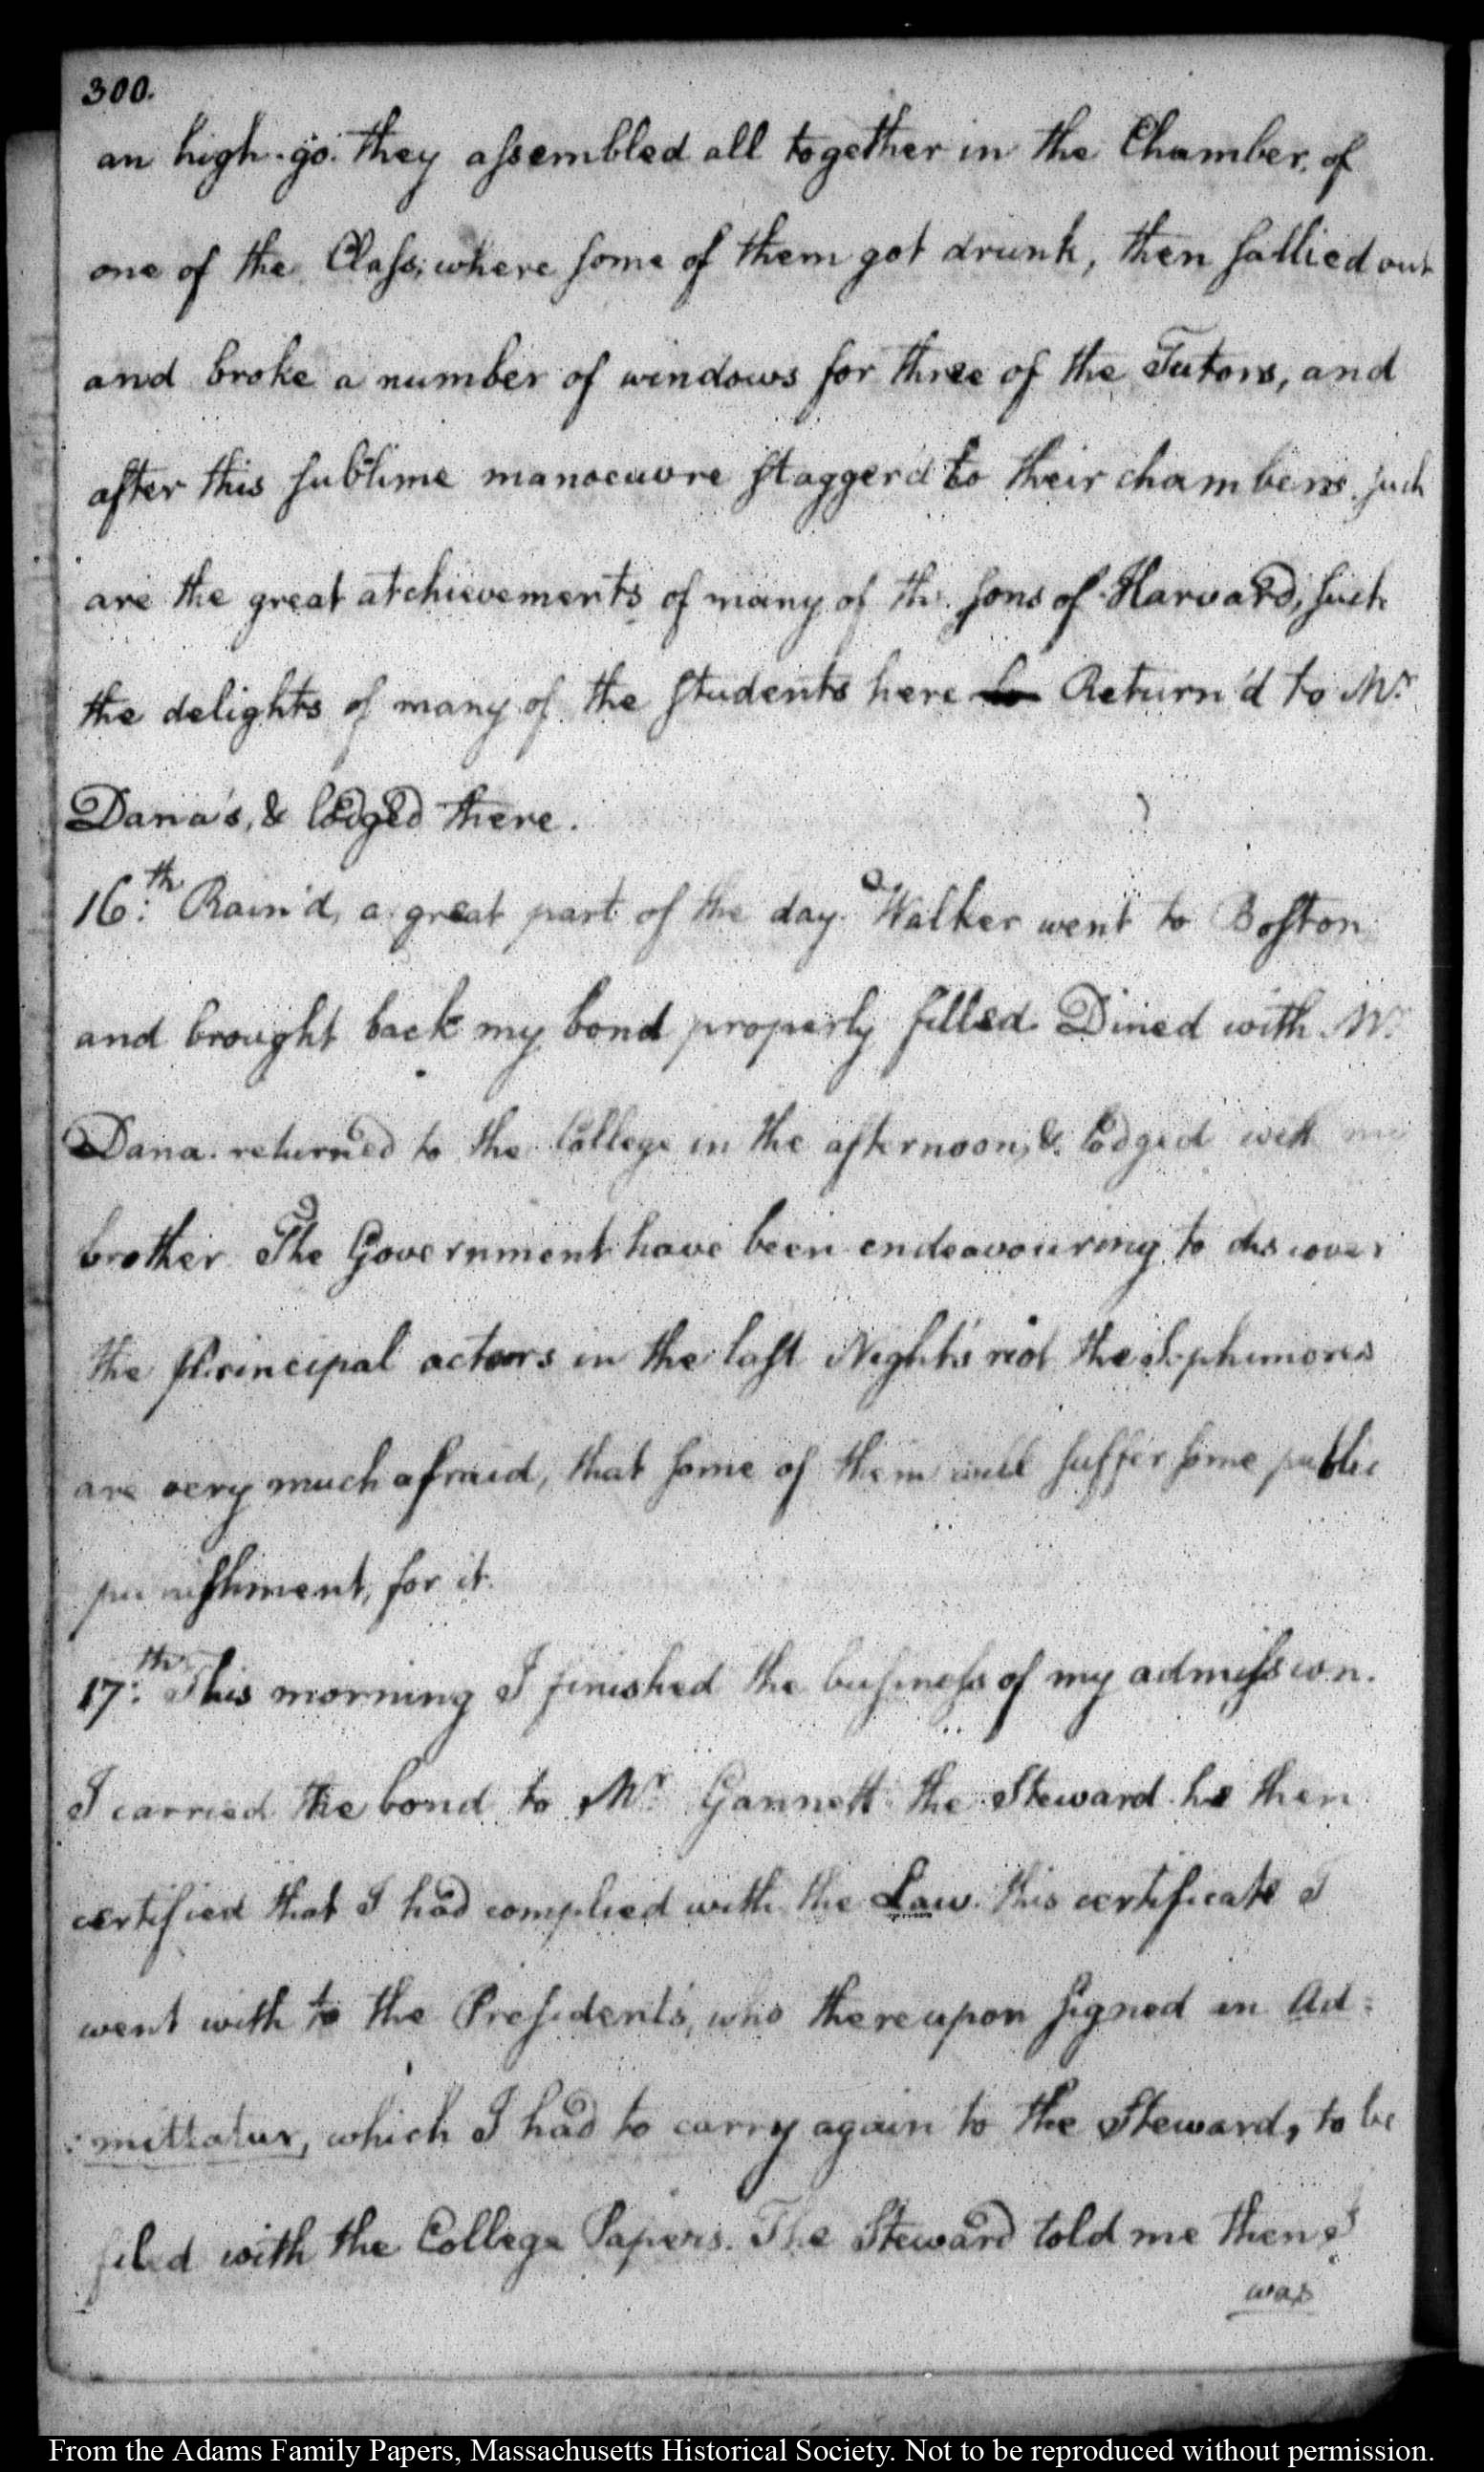 300.
an high-go. they assembled all together in the Chamber, of
one of the Class, where some of them got drunk, then sallied out
and broke a number of windows for three of the Tutors, and
after this sublime manoeuvre stagger'd to their chambers. such
are the great atchievements of many of the sons of Harvard, such
the delights of many of the students here Return'd to Mr
Dana's, & lodged there.
16.th Rain'd, a great part of the day. Walker went to Boston
and brought back my bond properly filled. Dined with Mr
Dana. returned to the College in the afternoon, & lodged with my
brother. The Government have been endeavouring to discover
the Principal actors in the last Night's riot the Sophimores
are very much afraid, that some of them will suffer some public
punishment, for it.
17.th This morning I finished the business of my admission.
I carried the bond to Mr Gannett the Steward. he then
certified that I had complied with the Law. this certificate I
went with to the President's, who thereupon signed an Ad=
=mittatur, which I had to carry again to the Steward, to be
filed with the College Papers. The Steward told me then I
was
From the Adams Family Papers, Massachusetts Historical Society. Not to be reproduced without permission.